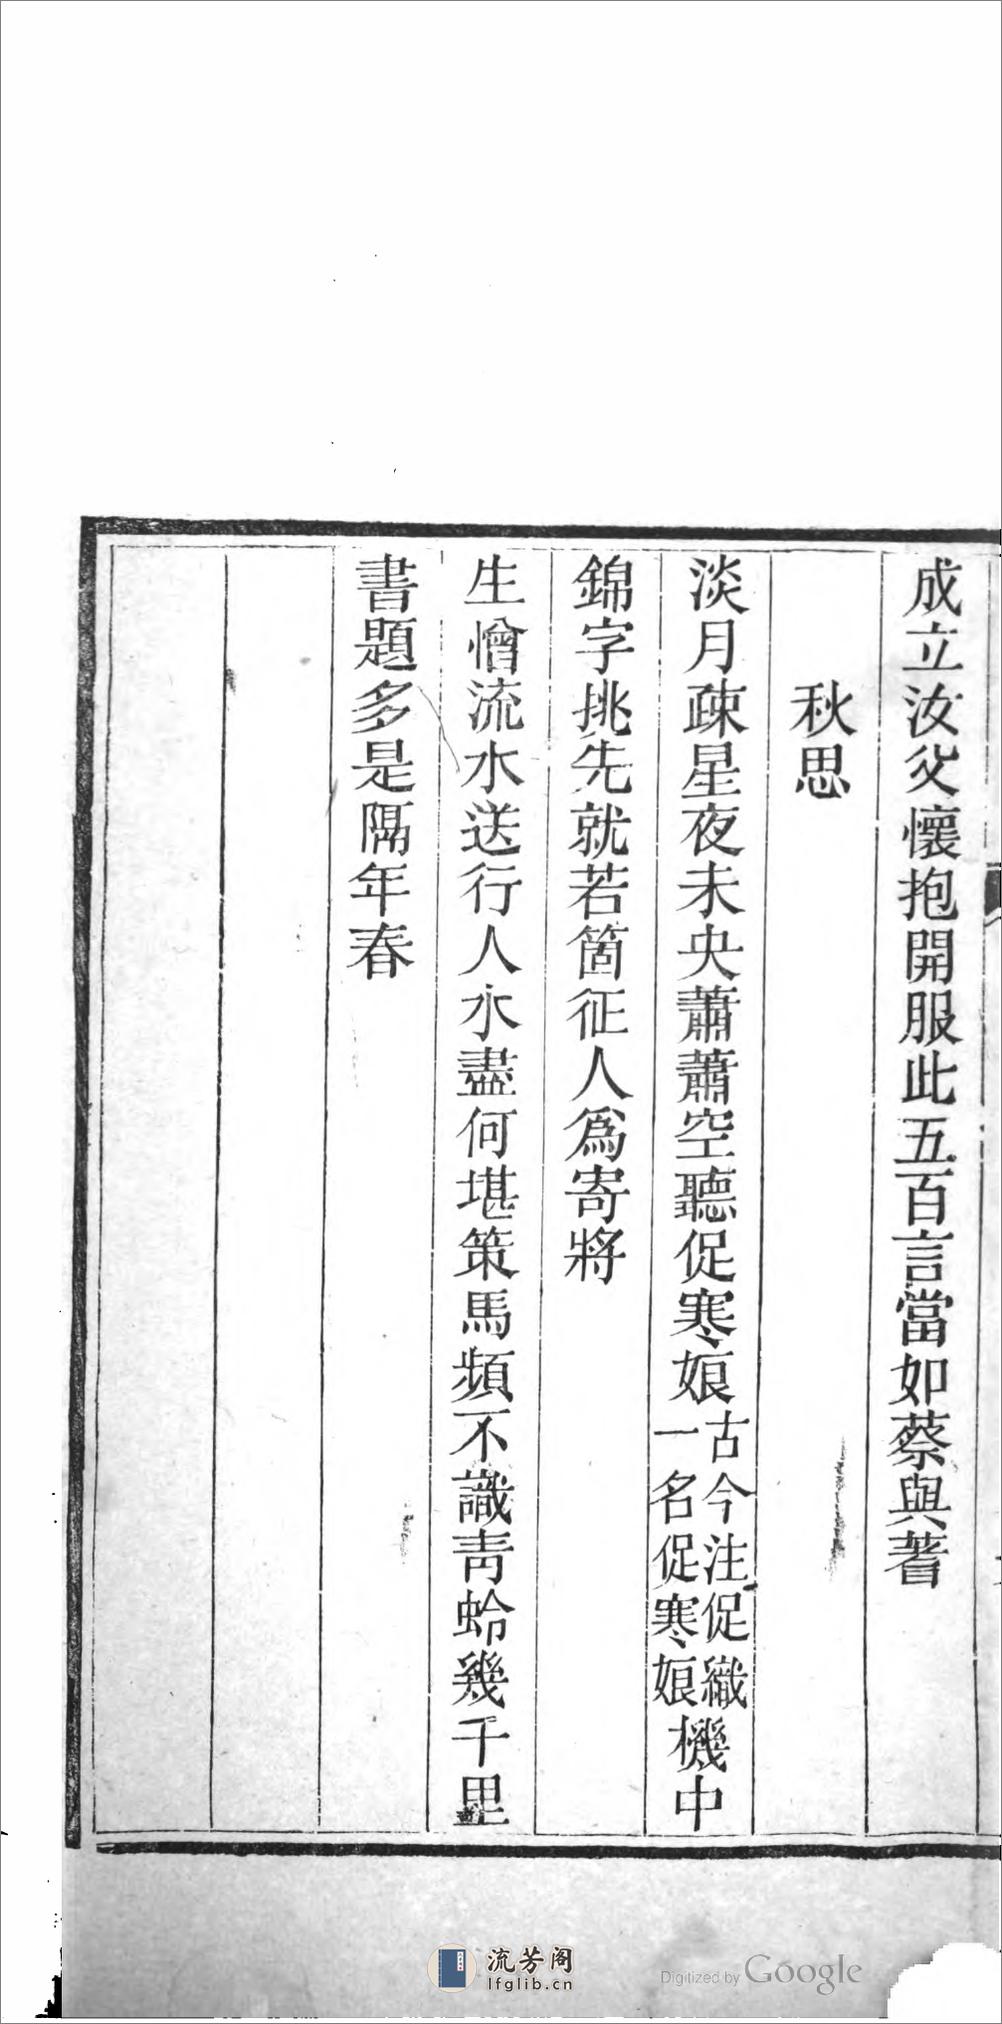 成立汝父懷抱開服此五百言當如蔡與蓍
秋思
淡月疎星夜未央蕭蕭空聽促寒娘古今注促織一名促寒娘機中
錦字挑先就若箇征人爲寄將
生憎流水送行人水盡何堪策馬頻不識靑蛉幾千里
書題多是隔年春
流芳阁
lfglib.cn
Digitized by Google